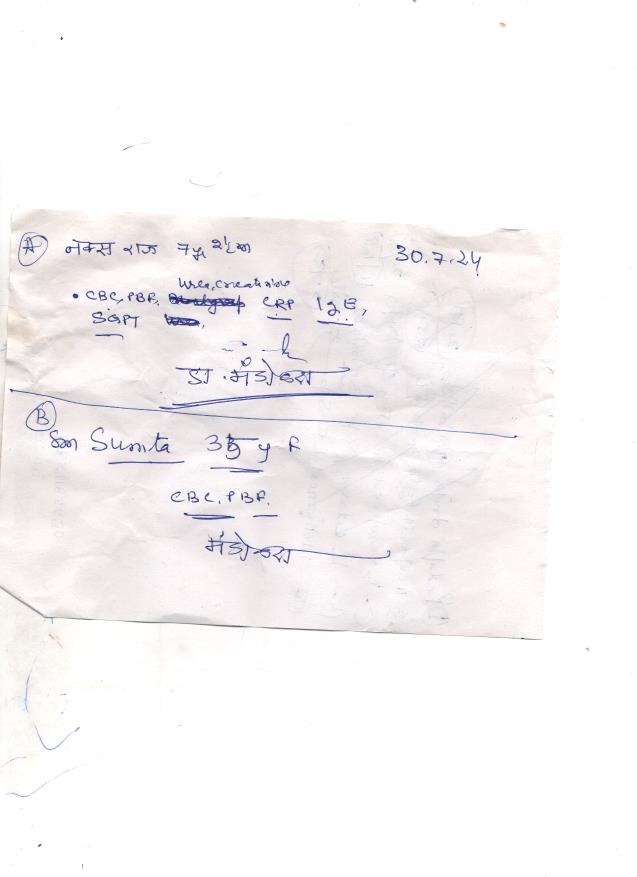 A नक्स राज 7 y 30.7.24
Urea, Creatinine
• CBC, PBF, CRP IgE,
SGPT
डा.
B
Sunita 35 y F
CBC, PBF.